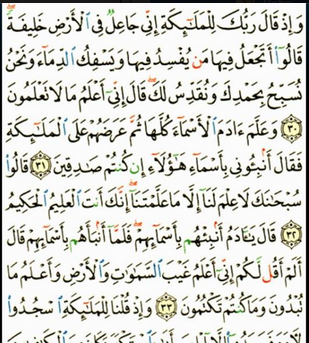 وَإِذْ قَالَ رَبُّكَ لِلْمَلَـٰٓئِكَةِ إِنِّى جَاعِلٌ فِى ٱلْأَرْضِ خَلِيفَةً
قَالُوٓا۟ أَتَجْعَلُ فِيهَا مَن يُفْسِدُ فِيهَا وَيَسْفِكُ ٱلدِّمَآءَ وَنَحْنُ
نُسَبِّحُ بِحَمْدِكَ وَنُقَدِّسُ لَكَ ۖ قَالَ إِنِّىٓ أَعْلَمُ مَا لَا تَعْلَمُونَ
﴿٣٠﴾ وَعَلَّمَ ءَادَمَ ٱلْأَسْمَآءَ كُلَّهَا ثُمَّ عَرَضَهُمْ عَلَى ٱلْمَلَـٰٓئِكَةِ
فَقَالَ أَنۢبِـُٔونِى بِأَسْمَآءِ هَـٰٓؤُلَآءِ إِن كُنتُمْ صَـٰدِقِينَ ﴿٣١﴾ قَالُوا۟
سُبْحَـٰنَكَ لَا عِلْمَ لَنَآ إِلَّا مَا عَلَّمْتَنَآ ۖ إِنَّكَ أَنتَ ٱلْعَلِيمُ ٱلْحَكِيمُ
﴿٣٢﴾ قَالَ يَـٰٓـَٔادَمُ أَنۢبِئْهُم بِأَسْمَآئِهِمْ ۖ فَلَمَّآ أَنۢبَأَهُم بِأَسْمَآئِهِمْ قَالَ
أَلَمْ أَقُل لَّكُمْ إِنِّىٓ أَعْلَمُ غَيْبَ ٱلسَّمَـٰوَٰتِ وَٱلْأَرْضِ وَأَعْلَمُ مَا
تُبْدُونَ وَمَا كُنتُمْ تَكْتُمُونَ ﴿٣٣﴾ وَإِذْ قُلْنَا لِلْمَلَـٰٓئِكَةِ ٱسْجُدُوا۟